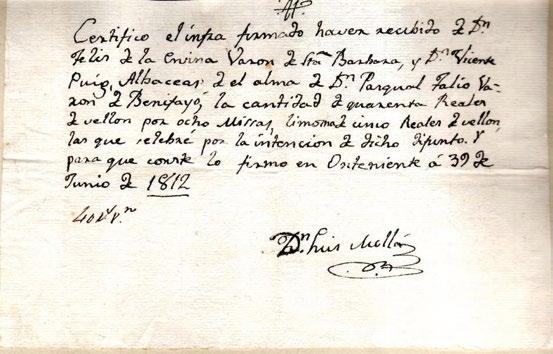 Certifico el infra firmado haver recibido de Dn
Felis de la Encina Varon de Sta Barbara, y Dn Vicente
Puig, Albaceas de el alma de Dn Pasqual Falio Va-
ron de Benifayó, la cantidad de quarenta Reales
de vellon por ocho Missas, limosna de cinco Reales de vellon,
las que celebré por la intencion de dicho difunto. Y
para que conste lo firmo en Onteniente á 30 de
Junio de 1812
40 rs vn
Dn Luis Mollá